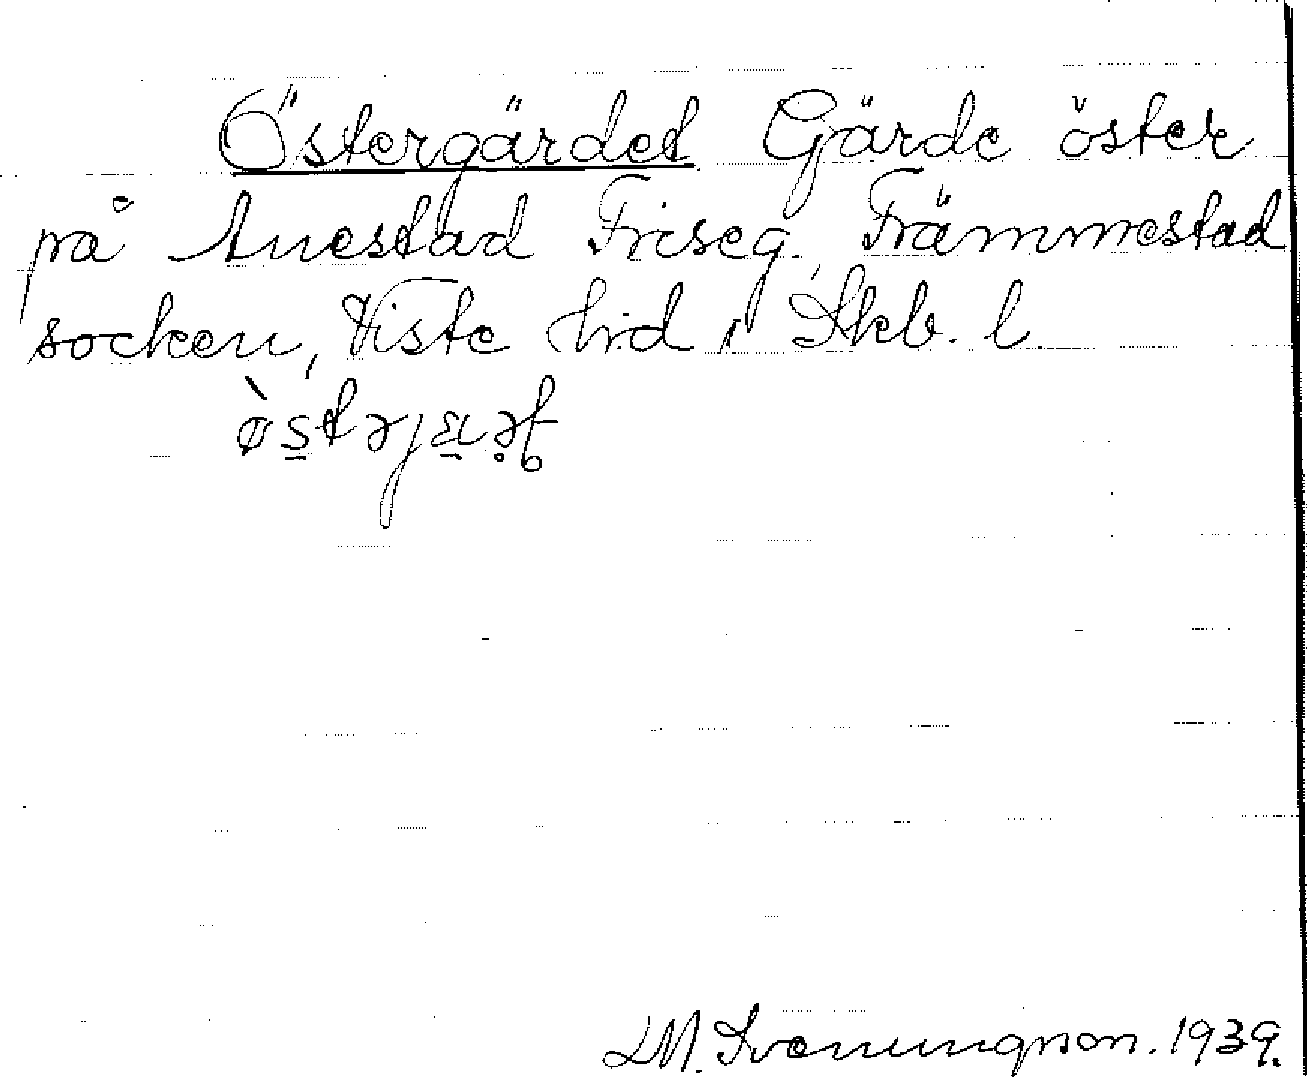 Östergärdet Gärde öster
på Anestad Friseg. Främmestad
socken, Viste hrd, Skb. l.
ò̤s̠tərjɛ̠ꭤət
LM. Svenungson. 1939.